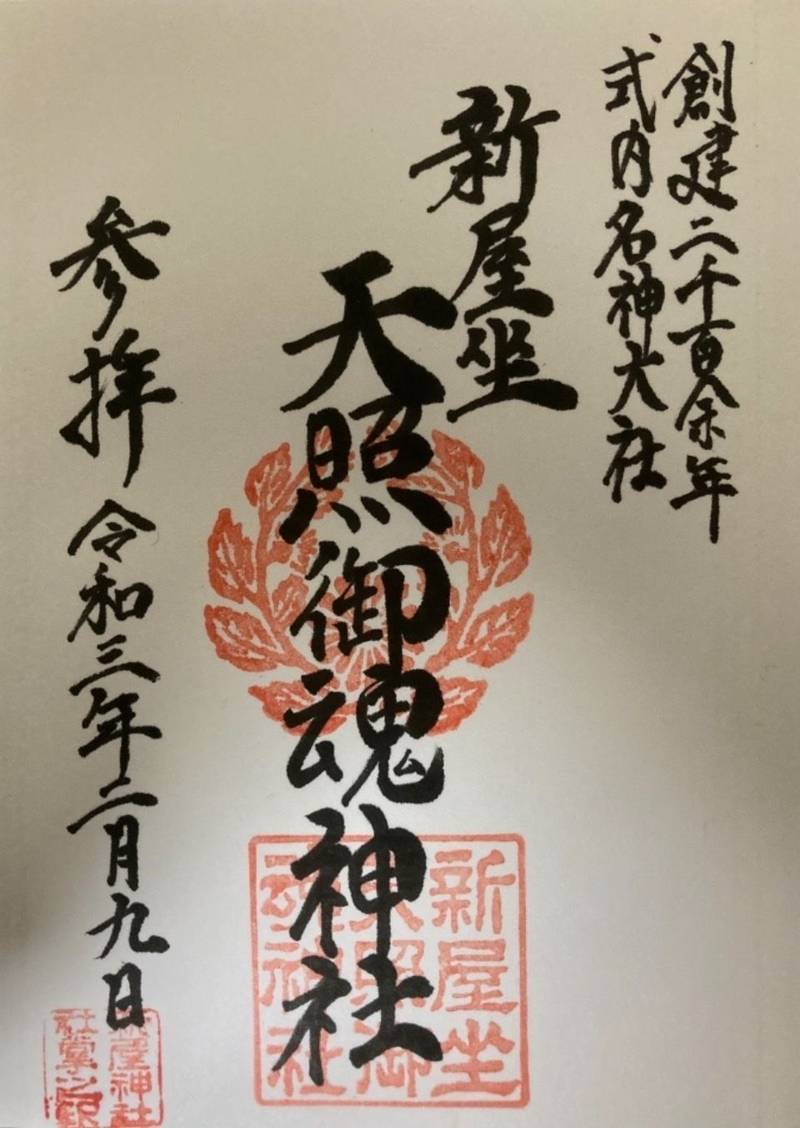 創建二千百余年
式内名神大社
新屋坐
天照御魂神社
参拝 令和三年二月九日
新屋坐
天照御
魂神社
新屋神社
社掌之印